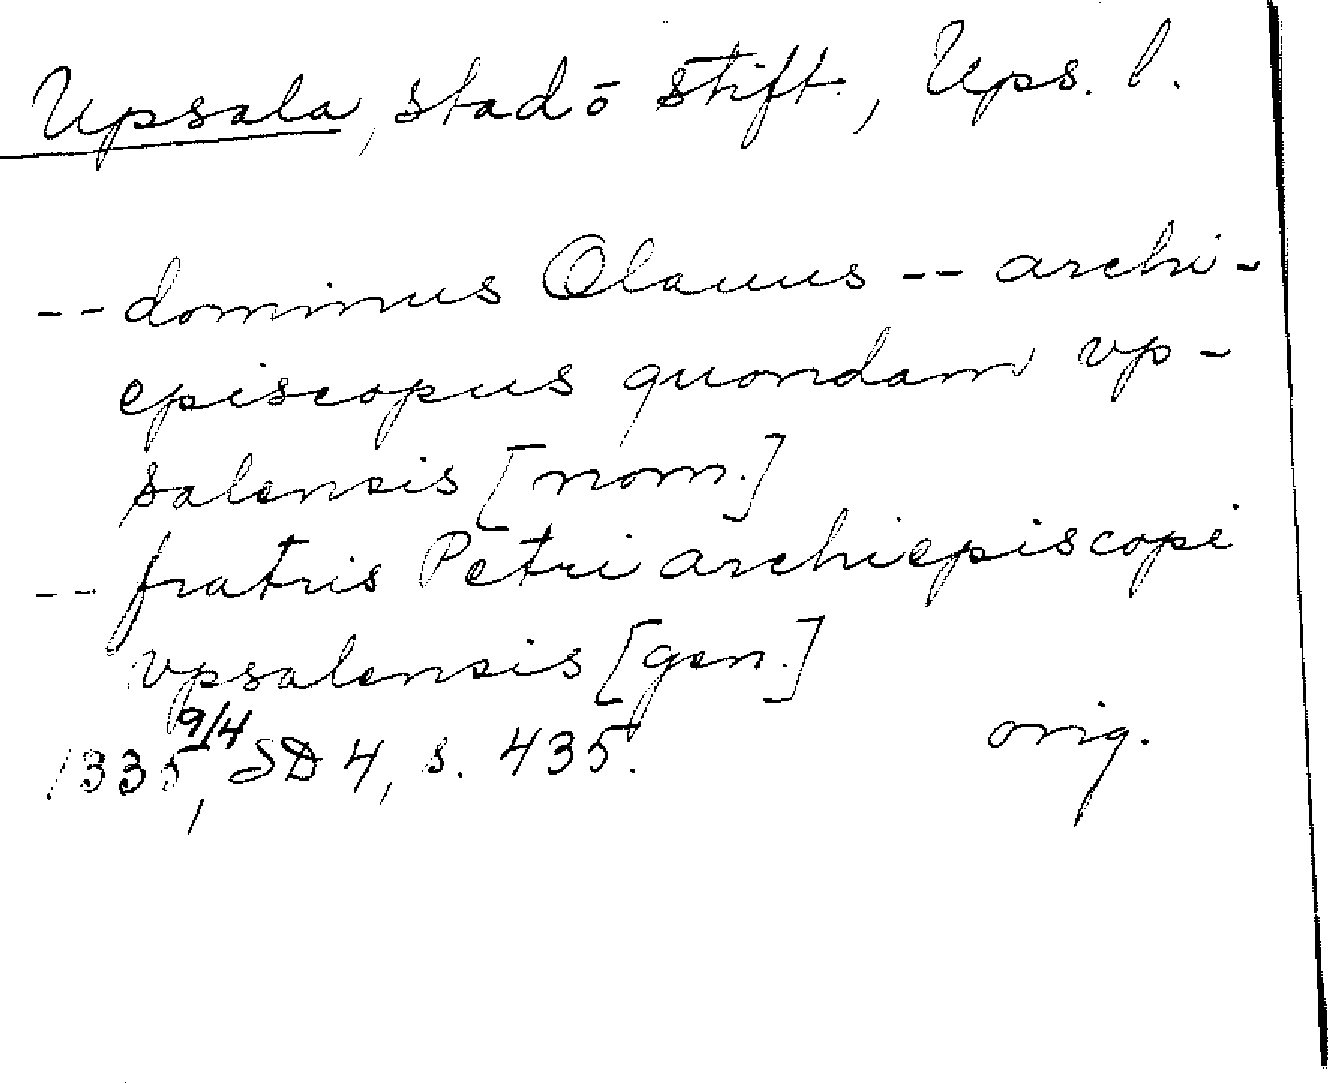 Upsala, stad o stift., Ups. l.
-- dominus Olauus -- archi-
episcopus quondam vp-
salensis [nom.]
-- fratris Petri archiepiscopi
vpsalensis [gen.]
1335 9/4, SD 4, s. 435. orig.